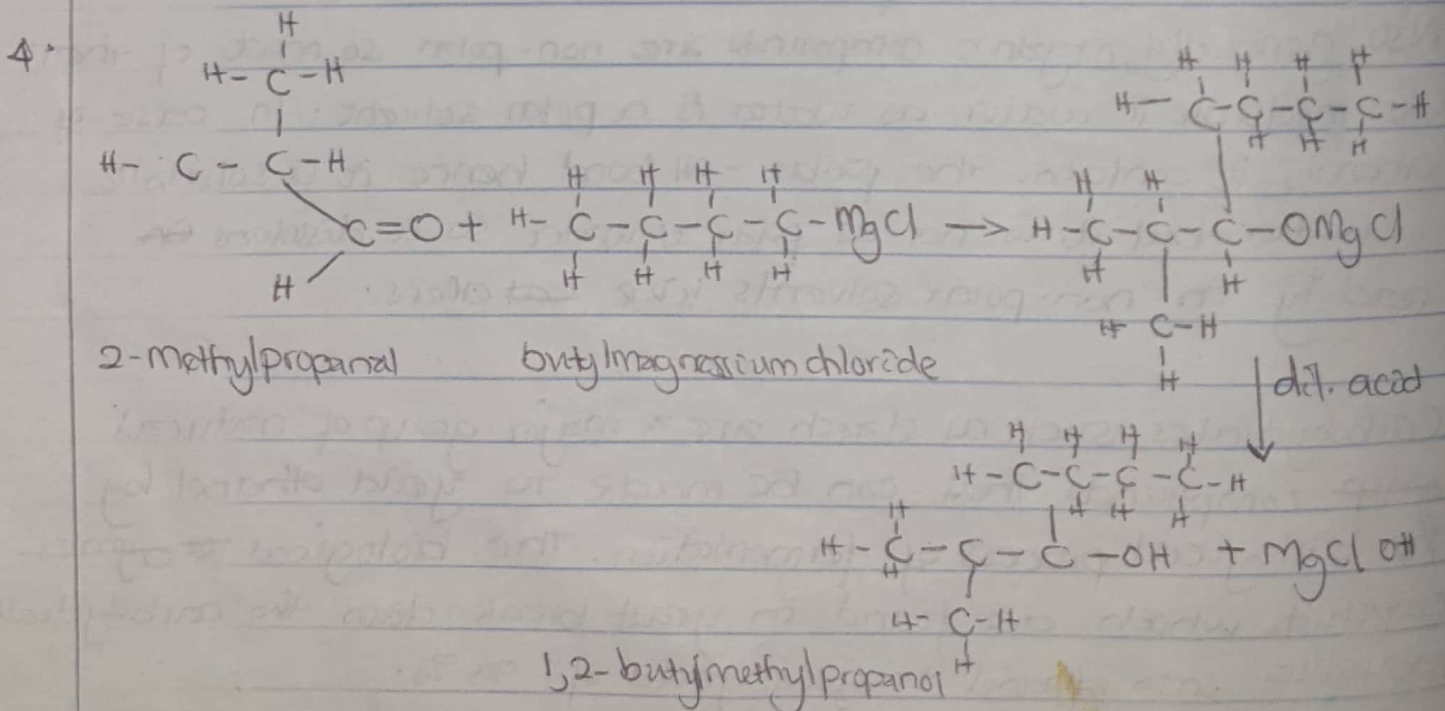 4.
H
H - C - H
H - C - C - H
C=O + H - C - C - C - C - MgCl → H - C - C - C - OMgCl
H H H H
H H H H
H
H - C - C - C - C - H
H H H H
H H H
H H
H H
H C - H
H
2-methylpropanal butylmagnessium chloride
dil. acid
H H H H
H - C - C - C - C - H
H H H
H
H - C - C - C - OH + MgCl OH
H
H - C - H
H
1,2-butylmethylpropanol